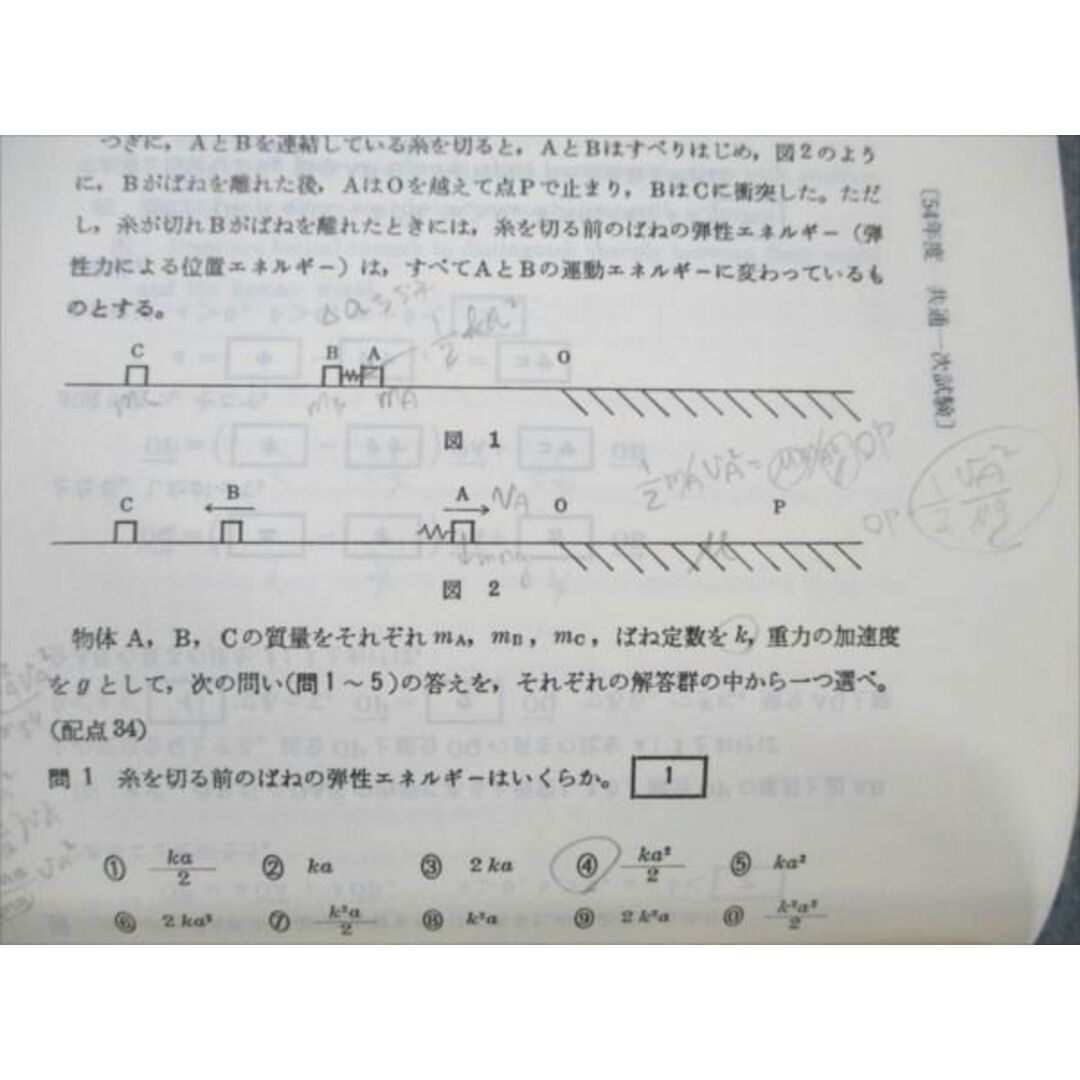 つぎに，AとBを連結している糸を切ると，AとBはすべりはじめ，図2のよう
に，Bがばねを離れた後，AはOを越えて点Pで止まり，BはCに衝突した。ただ
し，糸が切れBがばねを離れたときには，糸を切る前のばねの弾性エネルギー（弾
性力による位置エネルギー）は，すべてAとBの運動エネルギーに変わっているも
のとする。
½ka²
C B A O
mC mB mA
図 1
½mAVA²=
OP
C B A VA O P
OP
½ VA²
μg
図 2
〔54年度 共通一次試験〕
物体 A，B，Cの質量をそれぞれ mA，mB，mC，ばね定数を k，重力の加速度
を g として，次の問い(問1～5)の答えを，それぞれの解答群の中から一つ選べ。
(配点34)
問 1 糸を切る前のばねの弾性エネルギーはいくらか。 1
① ka/2 ② ka ③ 2 ka ④ ka²/2 ⑤ ka²
⑥ 2 ka² ⑦ k²a/2 ⑧ k²a ⑨ 2 k²a ⑩ k²a²/2